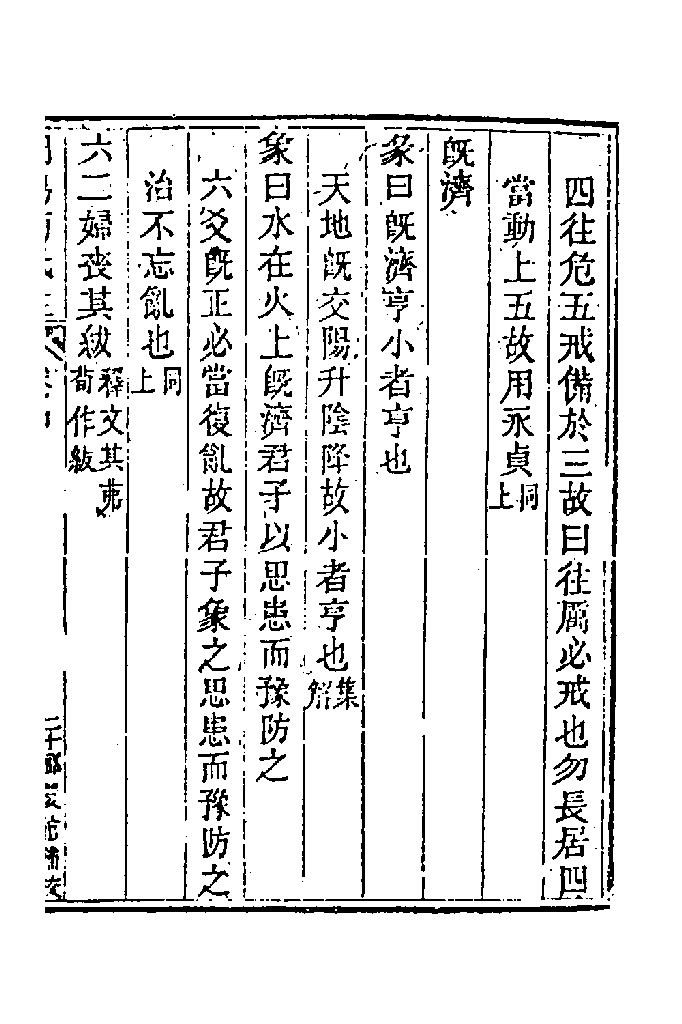 四往危五戒備於三故曰往厲必戒也勿長居四
當動上五故用永貞同上
旣濟
彖曰旣濟亨小者亨也
天地旣交陽升陰降故小者亨也集解
象曰水在火上旣濟君子以思患而豫防之
六爻旣正必當復亂故君子象之思患而豫防之
治不忘亂也同上
六二婦喪其紱釋文其茀荀作紱